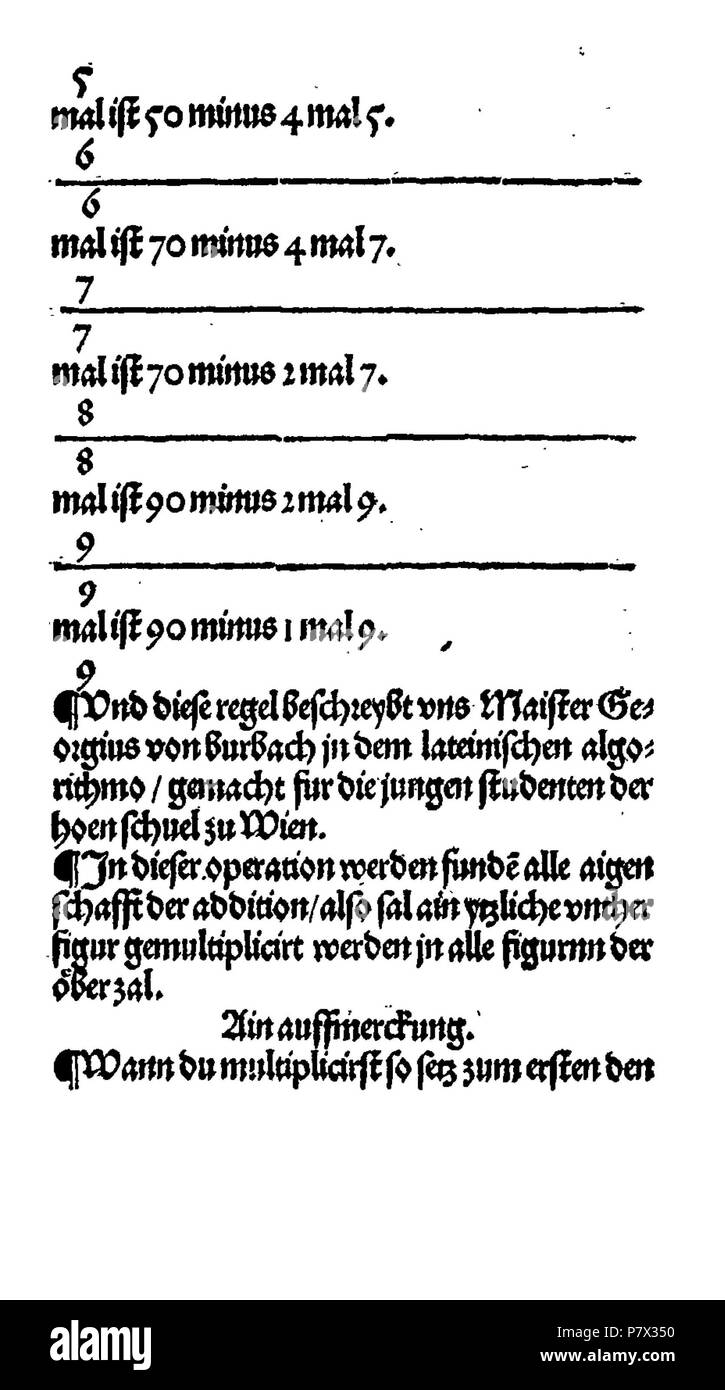 5
mal iſt 50 minus 4 mal 5.
6
6
mal iſt 70 minus 4 mal 7.
7
7
mal iſt 70 minus 2 mal 7.
8
8
mal iſt 90 minus 2 mal 9.
9
9
mal iſt 90 minus 1 mal 9.
9
¶Vnd dieſe regel beſchreybt vns Maiſter Ge⸗
orgius von burbach jn dem lateiniſchen algo⸗
rithmo / gemacht fur die jungen ſtudenten der
hoen ſchuel zu Wien.
¶In dieſer operation werden fundē alle aigen
ſchafft der addition/ alſo ſal ain ytzliche vnther
figur gemultiplicirt werden jn alle figurnn der
oͤber zal.
Ain auffmerckung.
¶Wann du multiplicirſt ſo ſetz zum erſten den
alamy
Image ID: P7X350
www.alamy.com